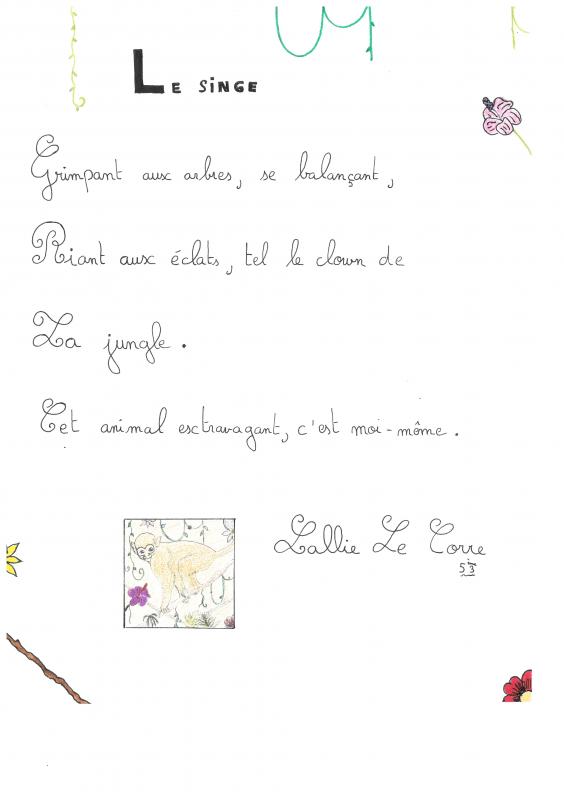 LE SINGE
Grimpant aux arbres, se balançant,
Riant aux éclats, tel le clown de
La jungle.
Cet animal extravagant, c'est moi-même.
Lallie Le Corre
53